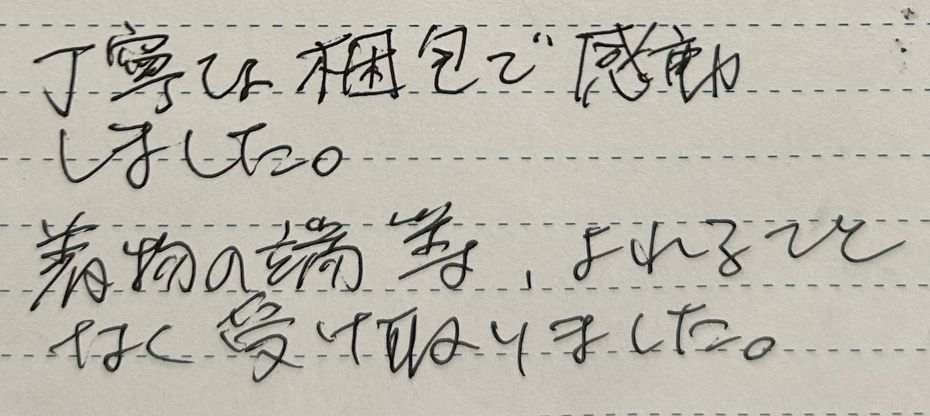 丁寧な梱包で感動
しました。
着物の端等、よれること
なく受け取りました。